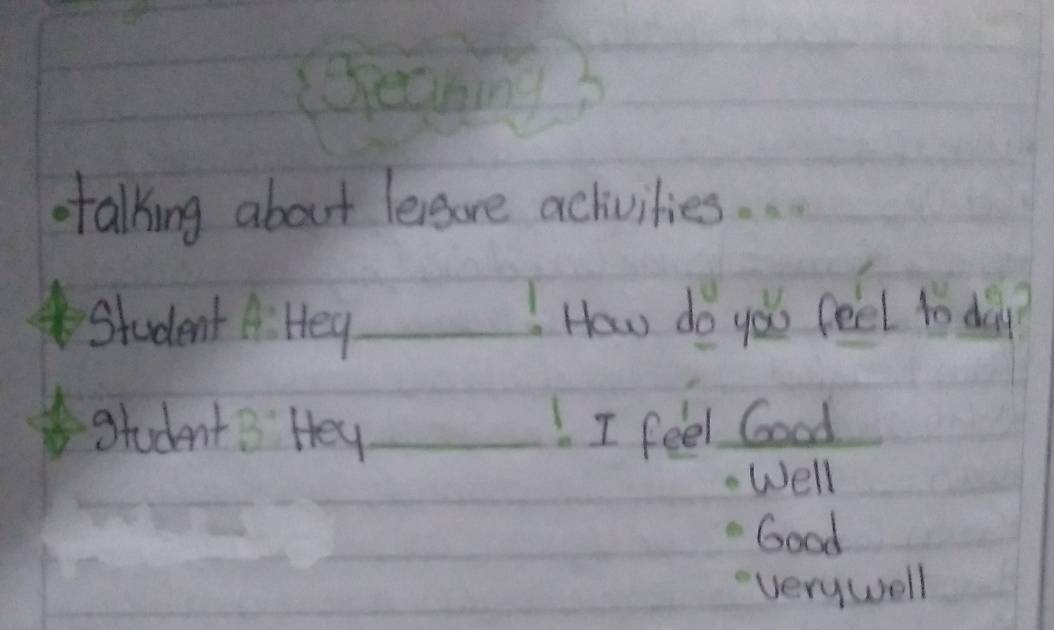 Speaking
•talking about leisure activities...
Student A: Hey ________! How do you feel to day?
Student B: Hey ________! I feel Good
• Well
• Good
• verywell